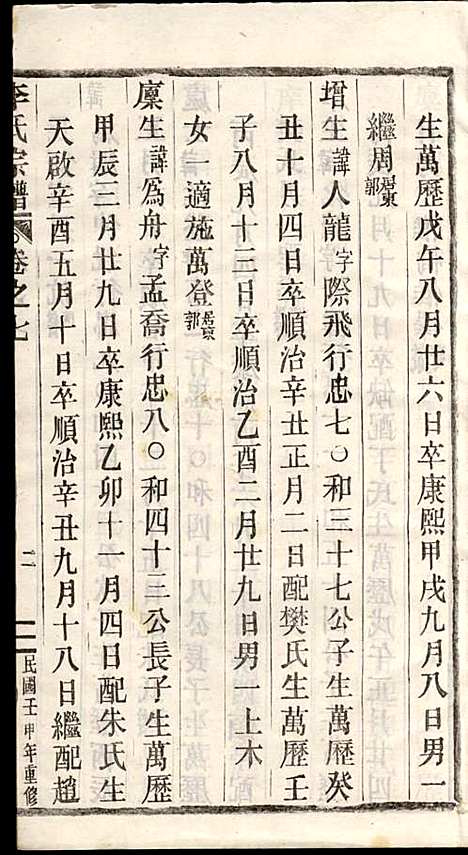 生萬歷戊午八月廿六日卒康熙甲戌九月八日男一
繼周居東郭
增生諱人龍字際飛行忠七〇和三十七公子生萬歷癸
丑十月四日卒順治辛丑正月二日配樊氏生萬歷壬
子八月十三日卒順治乙酉二月廿九日男一上木
女一適施萬登居東郭
廩生諱爲舟字孟喬行忠八〇和四十三公長子生萬歷
甲辰三月廿九日卒康熙乙卯十一月四日配朱氏生
天啟辛酉五月十日卒順治辛丑九月十八日繼配趙
李氏宗譜 卷之七 二 民國壬申年重修